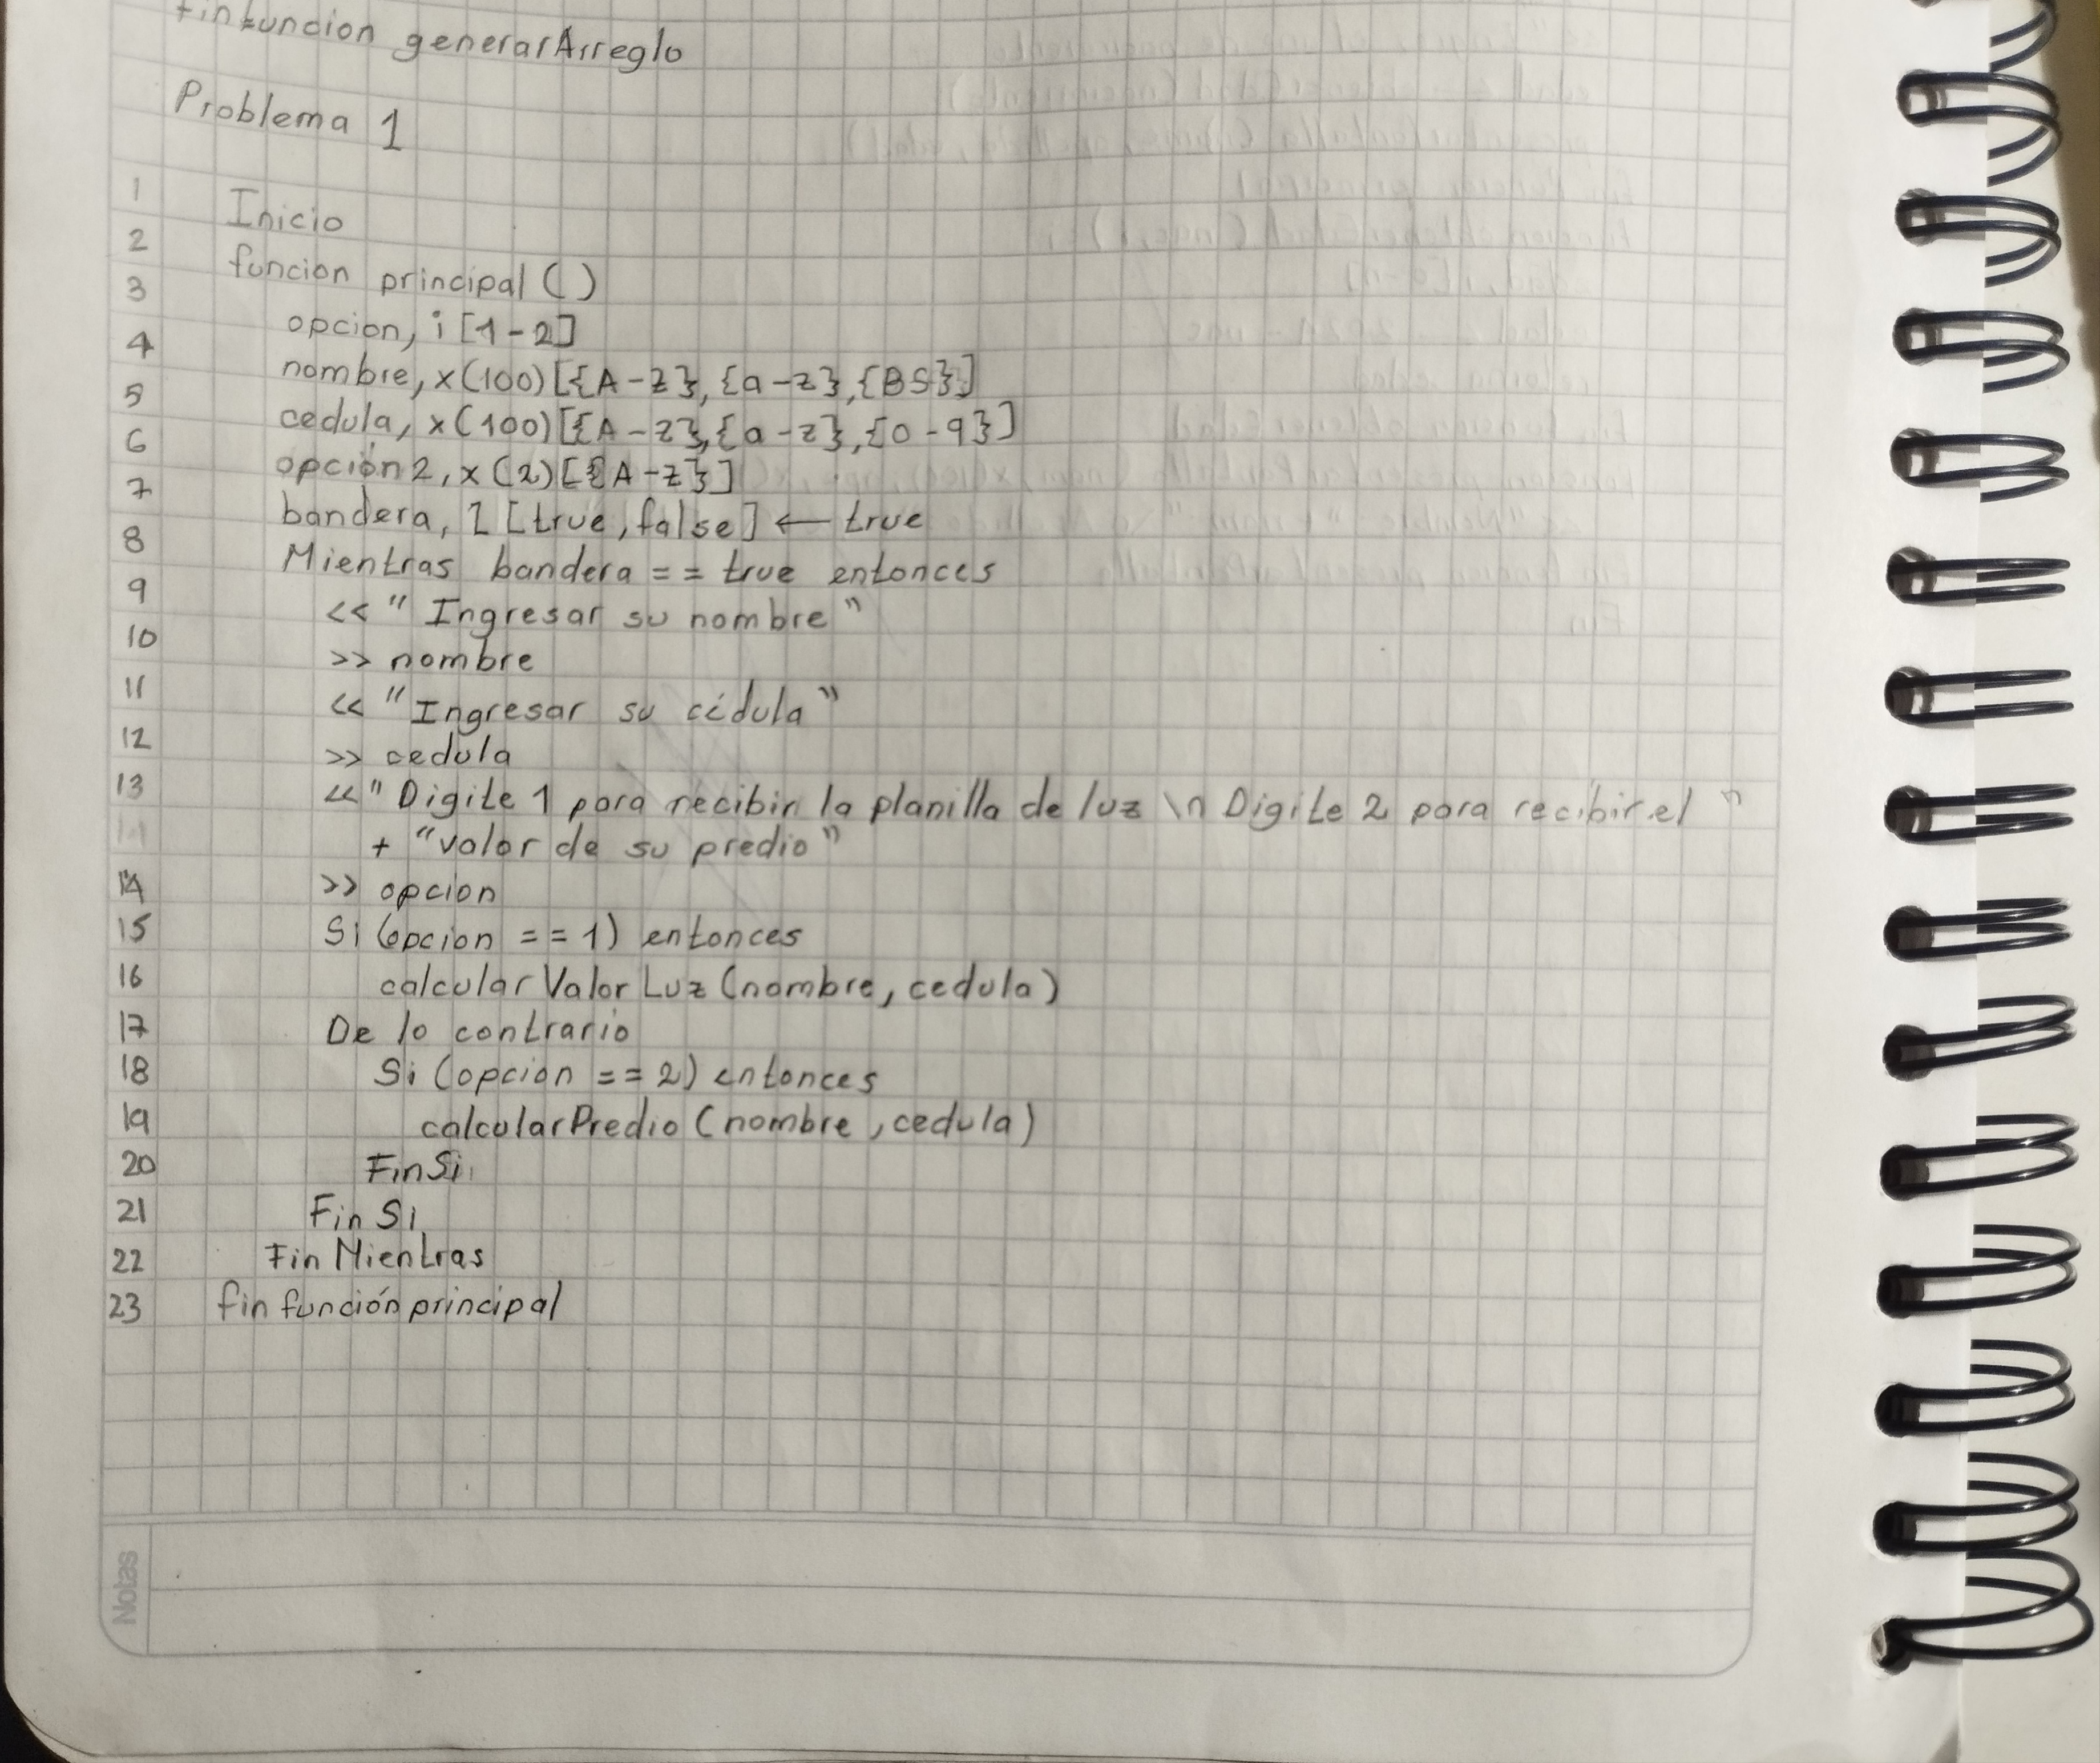 Fin funcion generarArreglo
Problema 1
1 Inicio
2 funcion principal ()
3 opcion, i [1-2]
4 nombre, x(100)[{A-z},{a-z},{BS}]
5 cedula, x(100)[{A-z},{a-z},{0-9}]
6 opción2, x(2)[{A-z}]
7 bandera, l [true, false] ← true
8 Mientras bandera == true entonces
9 << "Ingresar su nombre"
10 >> nombre
11 << "Ingresar su cédula"
12 >> cedula
13 << "Digite 1 para recibir la planilla de luz \n Digite 2 para recibir el "
+ "valor de su predio"
14 >> opcion
15 Si (opcion == 1) entonces
16 calcularValorLuz (nombre, cedula)
17 De lo contrario
18 Si (opcion == 2) entonces
19 calcularPredio (nombre, cedula)
20 FinSi
21 Fin Si
22 Fin Mientras
23 fin función principal
Notas